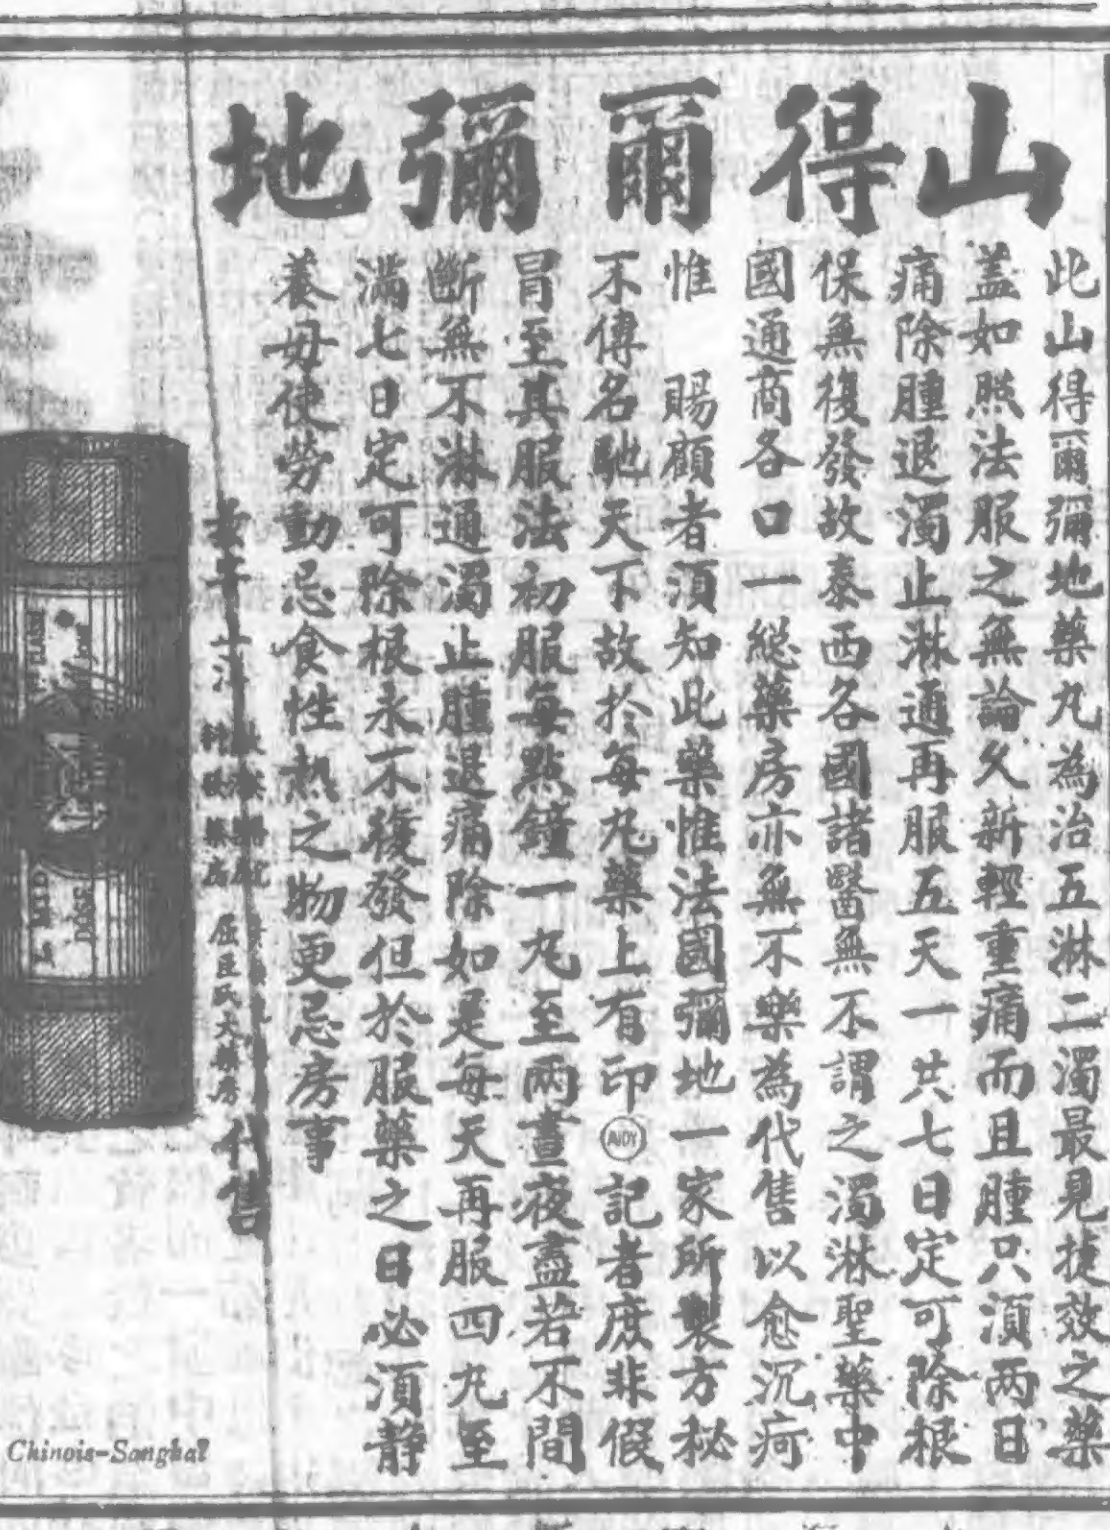 山得爾彌地
此山得爾彌地藥丸為治五淋二濁最見捷效之藥
蓋如照法服之無論久新輕重痛而且腫只須两日
痛除腫退濁止淋通再服五天一共七日定可除根
保無復發故泰西各國諸醫無不謂之濁淋聖藥中
國通商各口一總藥房亦無不樂為代售以愈沉疴
惟 賜顧者須知此藥惟法國彌地一家所製方秘
不傳名馳天下故於每丸藥上有印MIDY記者庶非假
冐至其服法初服每點鐘一丸至兩晝夜盡若不間
斷無不淋通濁止腫退痛除如是每天再服四丸至
滿七日定可除根永不複發但於服藥之日必須静
養毋使勞動忌食性熱之物更忌房事
屈臣氏大藥房
代售
DOSE
Chinois-Songhaï